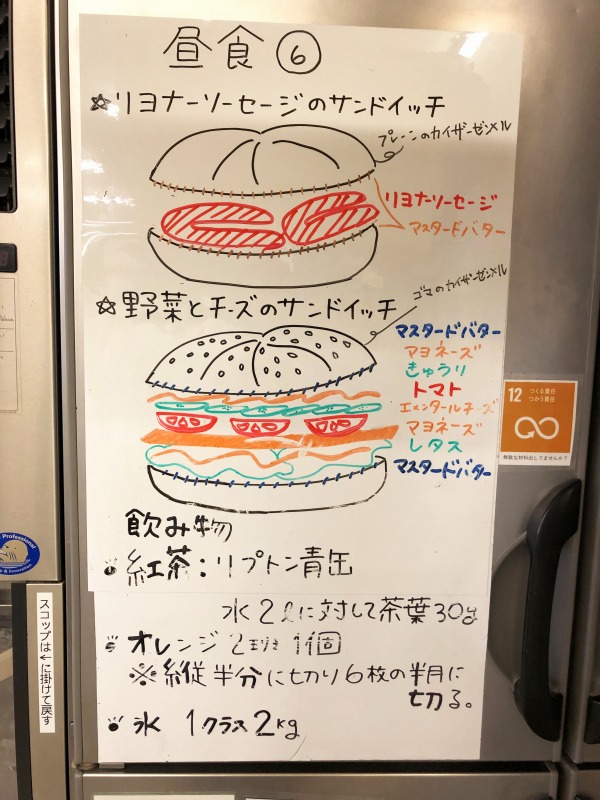 昼食⑥
☆リヨナーソーセージのサンドイッチ
プレーンのカイザーゼンメル
リヨナーソーセージ
マスタードバター
☆野菜とチーズのサンドイッチ
ゴマのカイザーゼンメル
マスタードバター
マヨネーズ
きゅうり
トマト
エメンタールチーズ
マヨネーズ
レタス
マスタードバター
飲み物
紅茶:リプトン青缶
水2ℓに対して茶葉30g
オレンジ2班1個
※縦半分に切り6枚の半月に
切る。
氷 1クラス2kg
12 つくる責任
つかう責任
無駄な材料出してませんか?
Professional
スコップは←に掛けて戻す